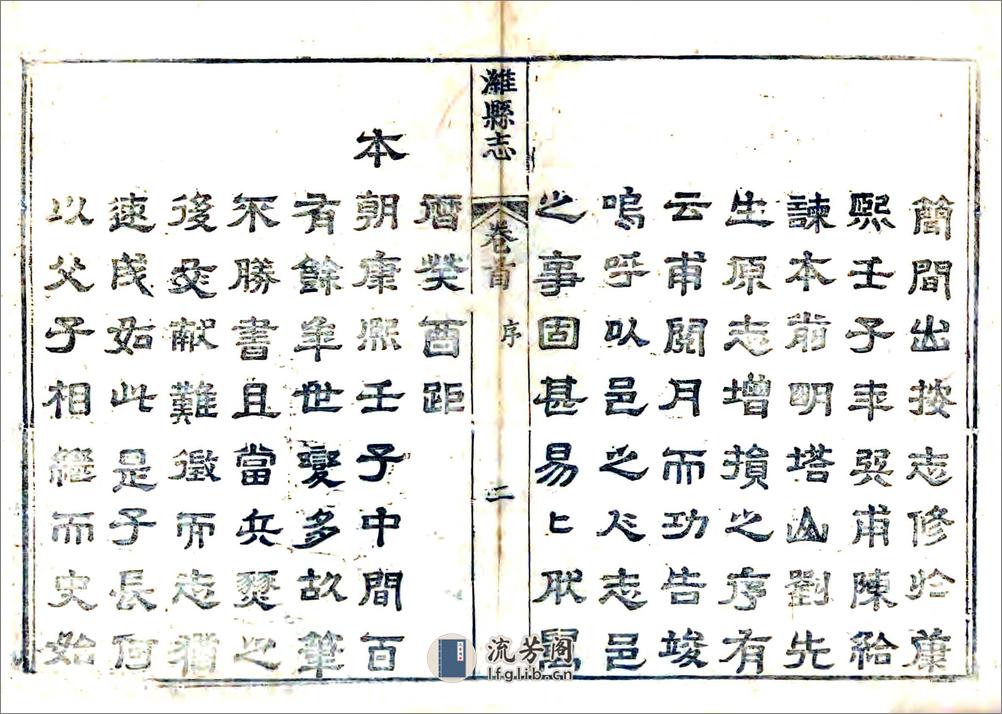 簡間出按志修於康
熙壬子年巽甫陳給
諫本前明塔山劉先
生原志增損之序有
云甫閱月而功告竣
嗚呼以邑之人志邑
之事固甚易匕肰萬
濰縣志 卷首 序 二
曆癸酉距
本朝康熙壬子中間百
有餘年世變多故筆
不勝書且當兵燹之
後文献難徵而志猶
速成如此是子長何
以父子相繼而史始
流芳阁
lfglib.cn